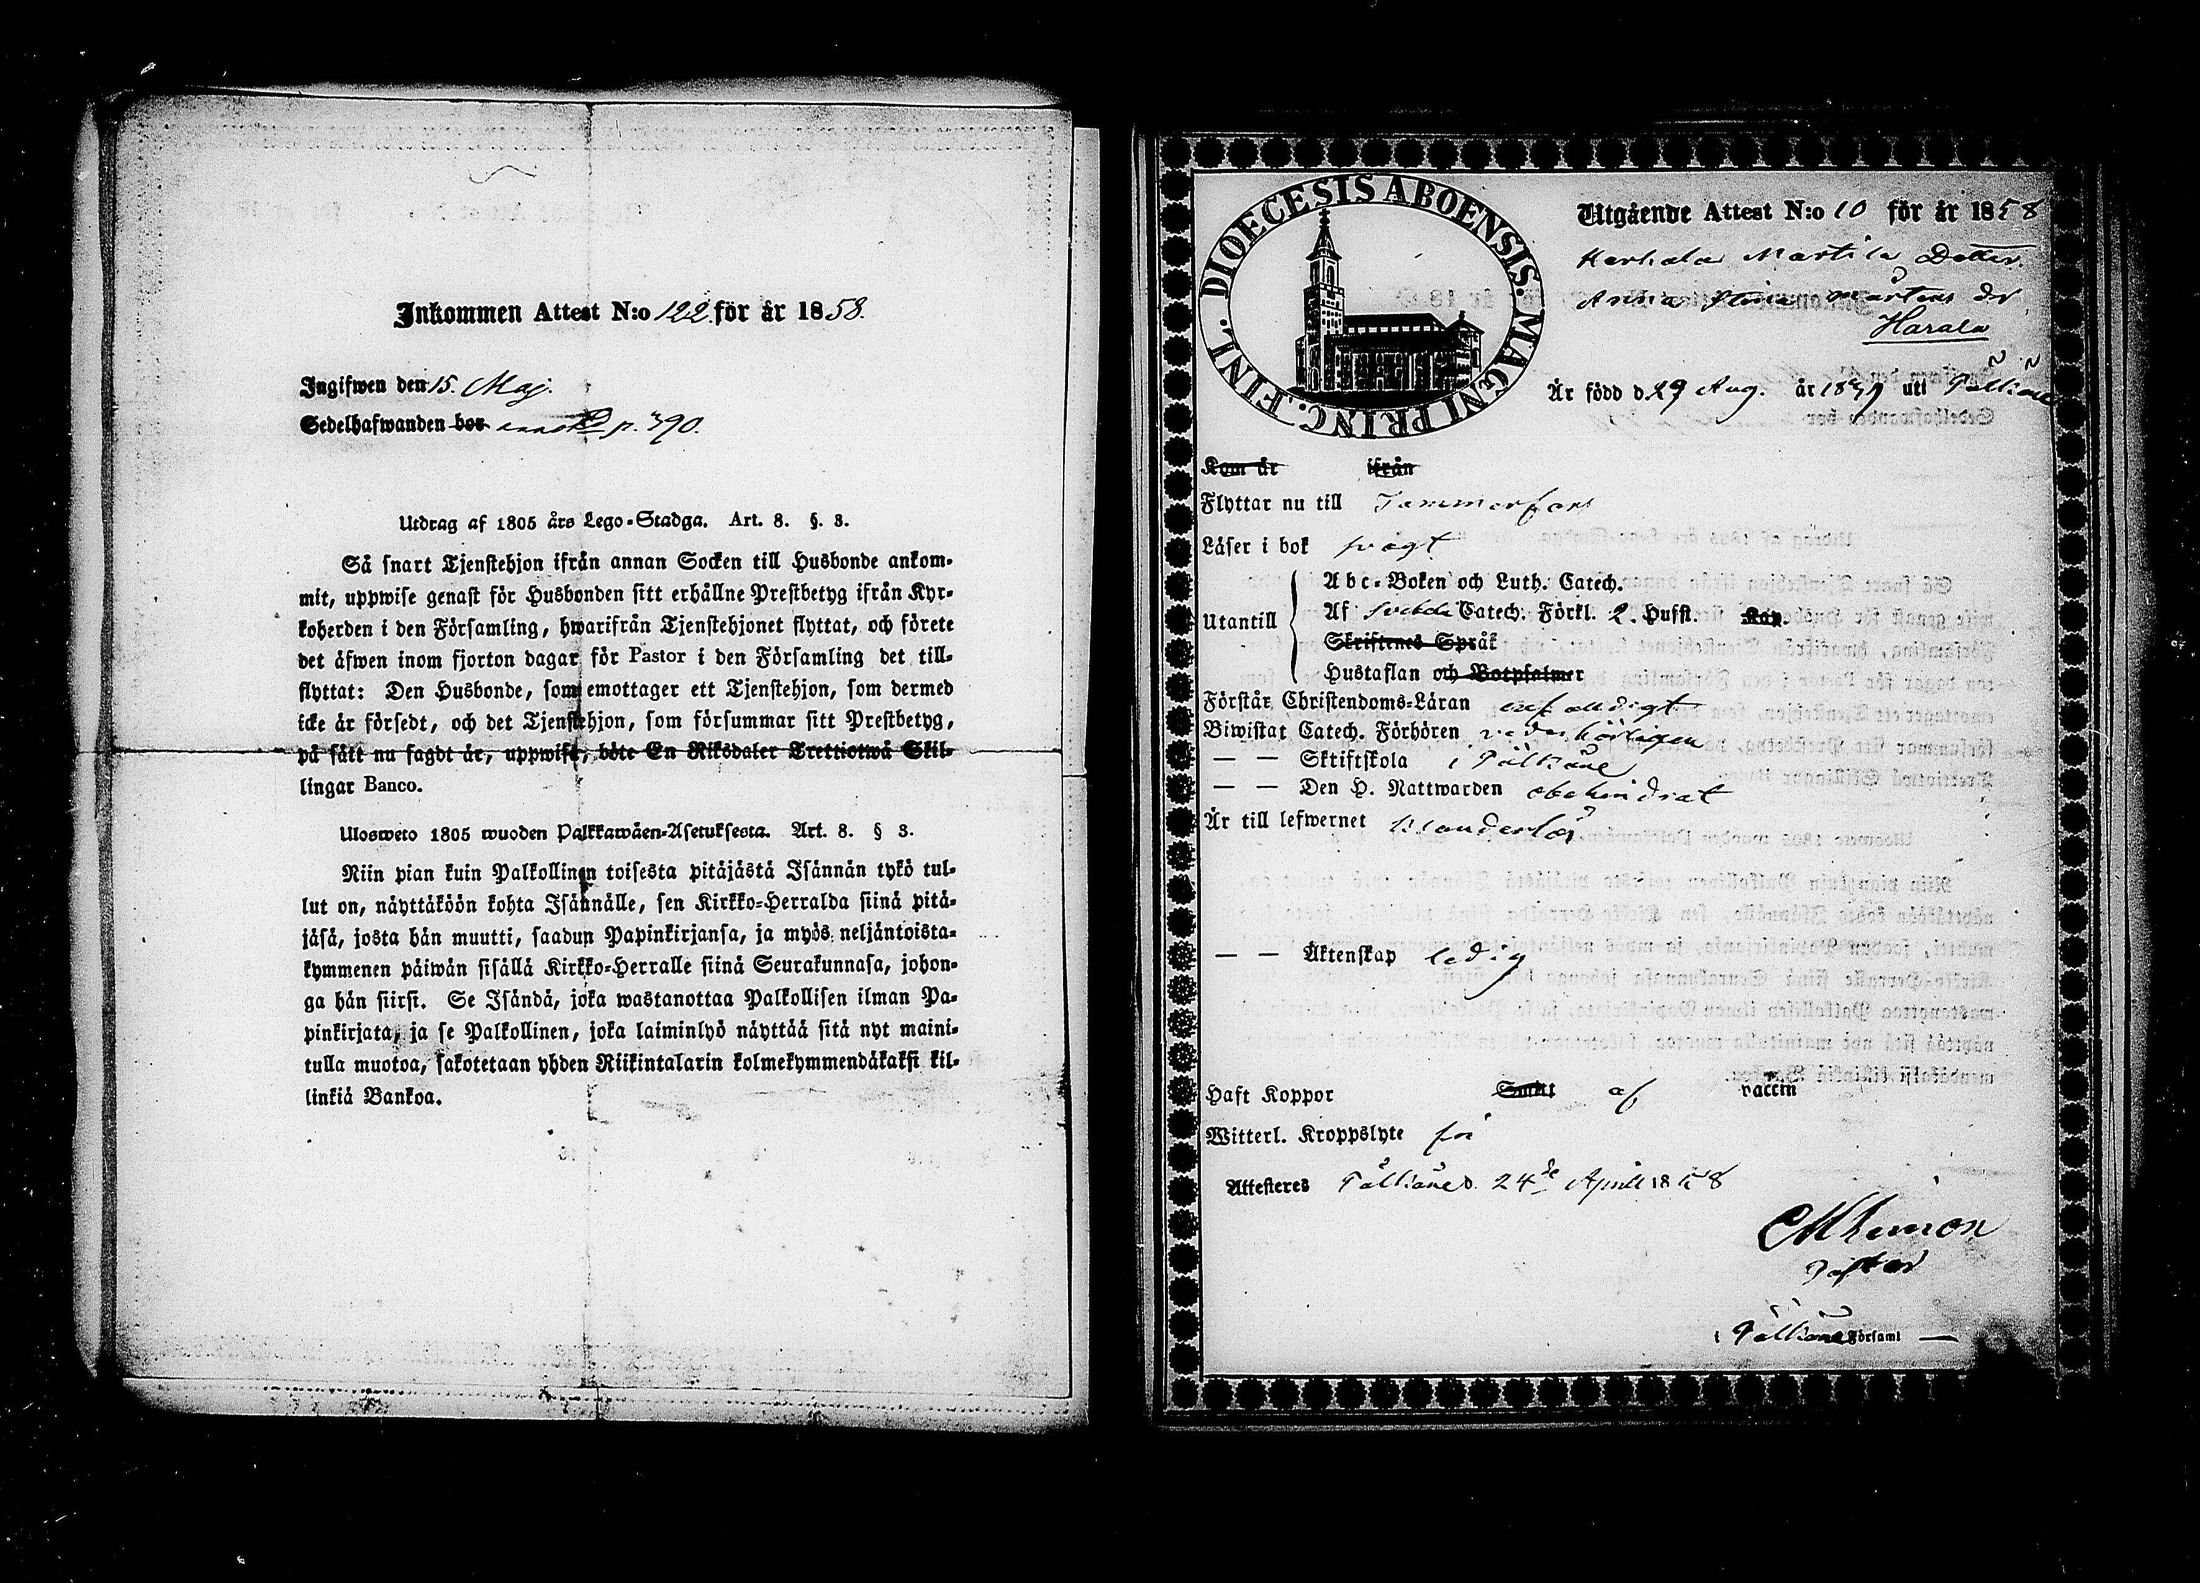 Inkommen Attest N:o 122. för år 1858.
Ingifwen den 15. Maj.
Sedelhafwanden bor p. 390.
Utdrag af 1805 års Lego-Stadga. Art. 8. §. 3.
Så snart Tjenstehjon ifrån annan Socken till Husbonde ankom-
mit, uppwise genast för Husbonden sitt erhållne Prestbetyg ifrån Kyr-
koherden i den Församling, hwarifrån Tjenstehjonet flyttat, och förete
det äfwen inom fjorton dagar för Pastor i den Församling det till-
flyttat: Den Husbonde, som emottager ett Tjenstehjon, som dermed
icke är försedt, och det Tjenstehjon, som försummar sitt Prestbetyg,
på sätt nu sagdt är, uppwisa, böte En Riksdaler Trettiotwå Skil-
lingar Banco.
Ulosweto 1805 wuoden Palkkawäen-Asetuksesta. Art. 8. § 3.
Niin pian kuin Palkollinen toisesta pitäjästä Isännän tykö tul-
lut on, näyttäköön kohta Isännälle, sen Kirkko-Herralda siinä pitä-
jäsä, josta hän muutti, saadun Papinkirjansa, ja myös neljäntoista-
kymmenen päiwän sisällä Kirkko-Herralle siinä Seurakunnasa, johon-
ga hän siirsi. Se Isändä, joka wastanottaa Palkollisen ilman Pa-
pinkirjata, ja se Palkollinen, joka laiminlyö näyttää sitä nyt maini-
tulla muotoa, sakotetaan yhden Riikintalarin kolmekymmendäkaksi kil-
linkiä Bankoa.
DIOECESIS ABOENSIS. MAGNI PRINC. FINL.
Utgående Attest N:o 10 för år 1858
Martila Dotter
Anna Stina Mårtens dr
Harala
Är född d. 29 Aug. år 18 uti Pälkäne
Kom år ifrån
Flyttar nu till Tammerfors
Läser i bok svagt
Utantill
Abc-Boken och Luth. Catech.
Af Svebelii Catech. Förkl. 2. Hufst. Kap.
Skriftenes Språk
Hustaflan och Botpsalmer
Förstår Christendoms-Läran enfaldigt
Biwistat Catech. Förhören vederbörligen
— — Sktiftskola i Pälkäne
— — Den H. Nattwarden obehindrat
Är till lefwernet klanderlös
— — Äktenskap ledig
Haft Koppor Smitt af vaccin
Witterl. Kroppslyte fri
Attesteres Pälkäne d. 24de April 1858
Pastor
i Pälkäne Församl —